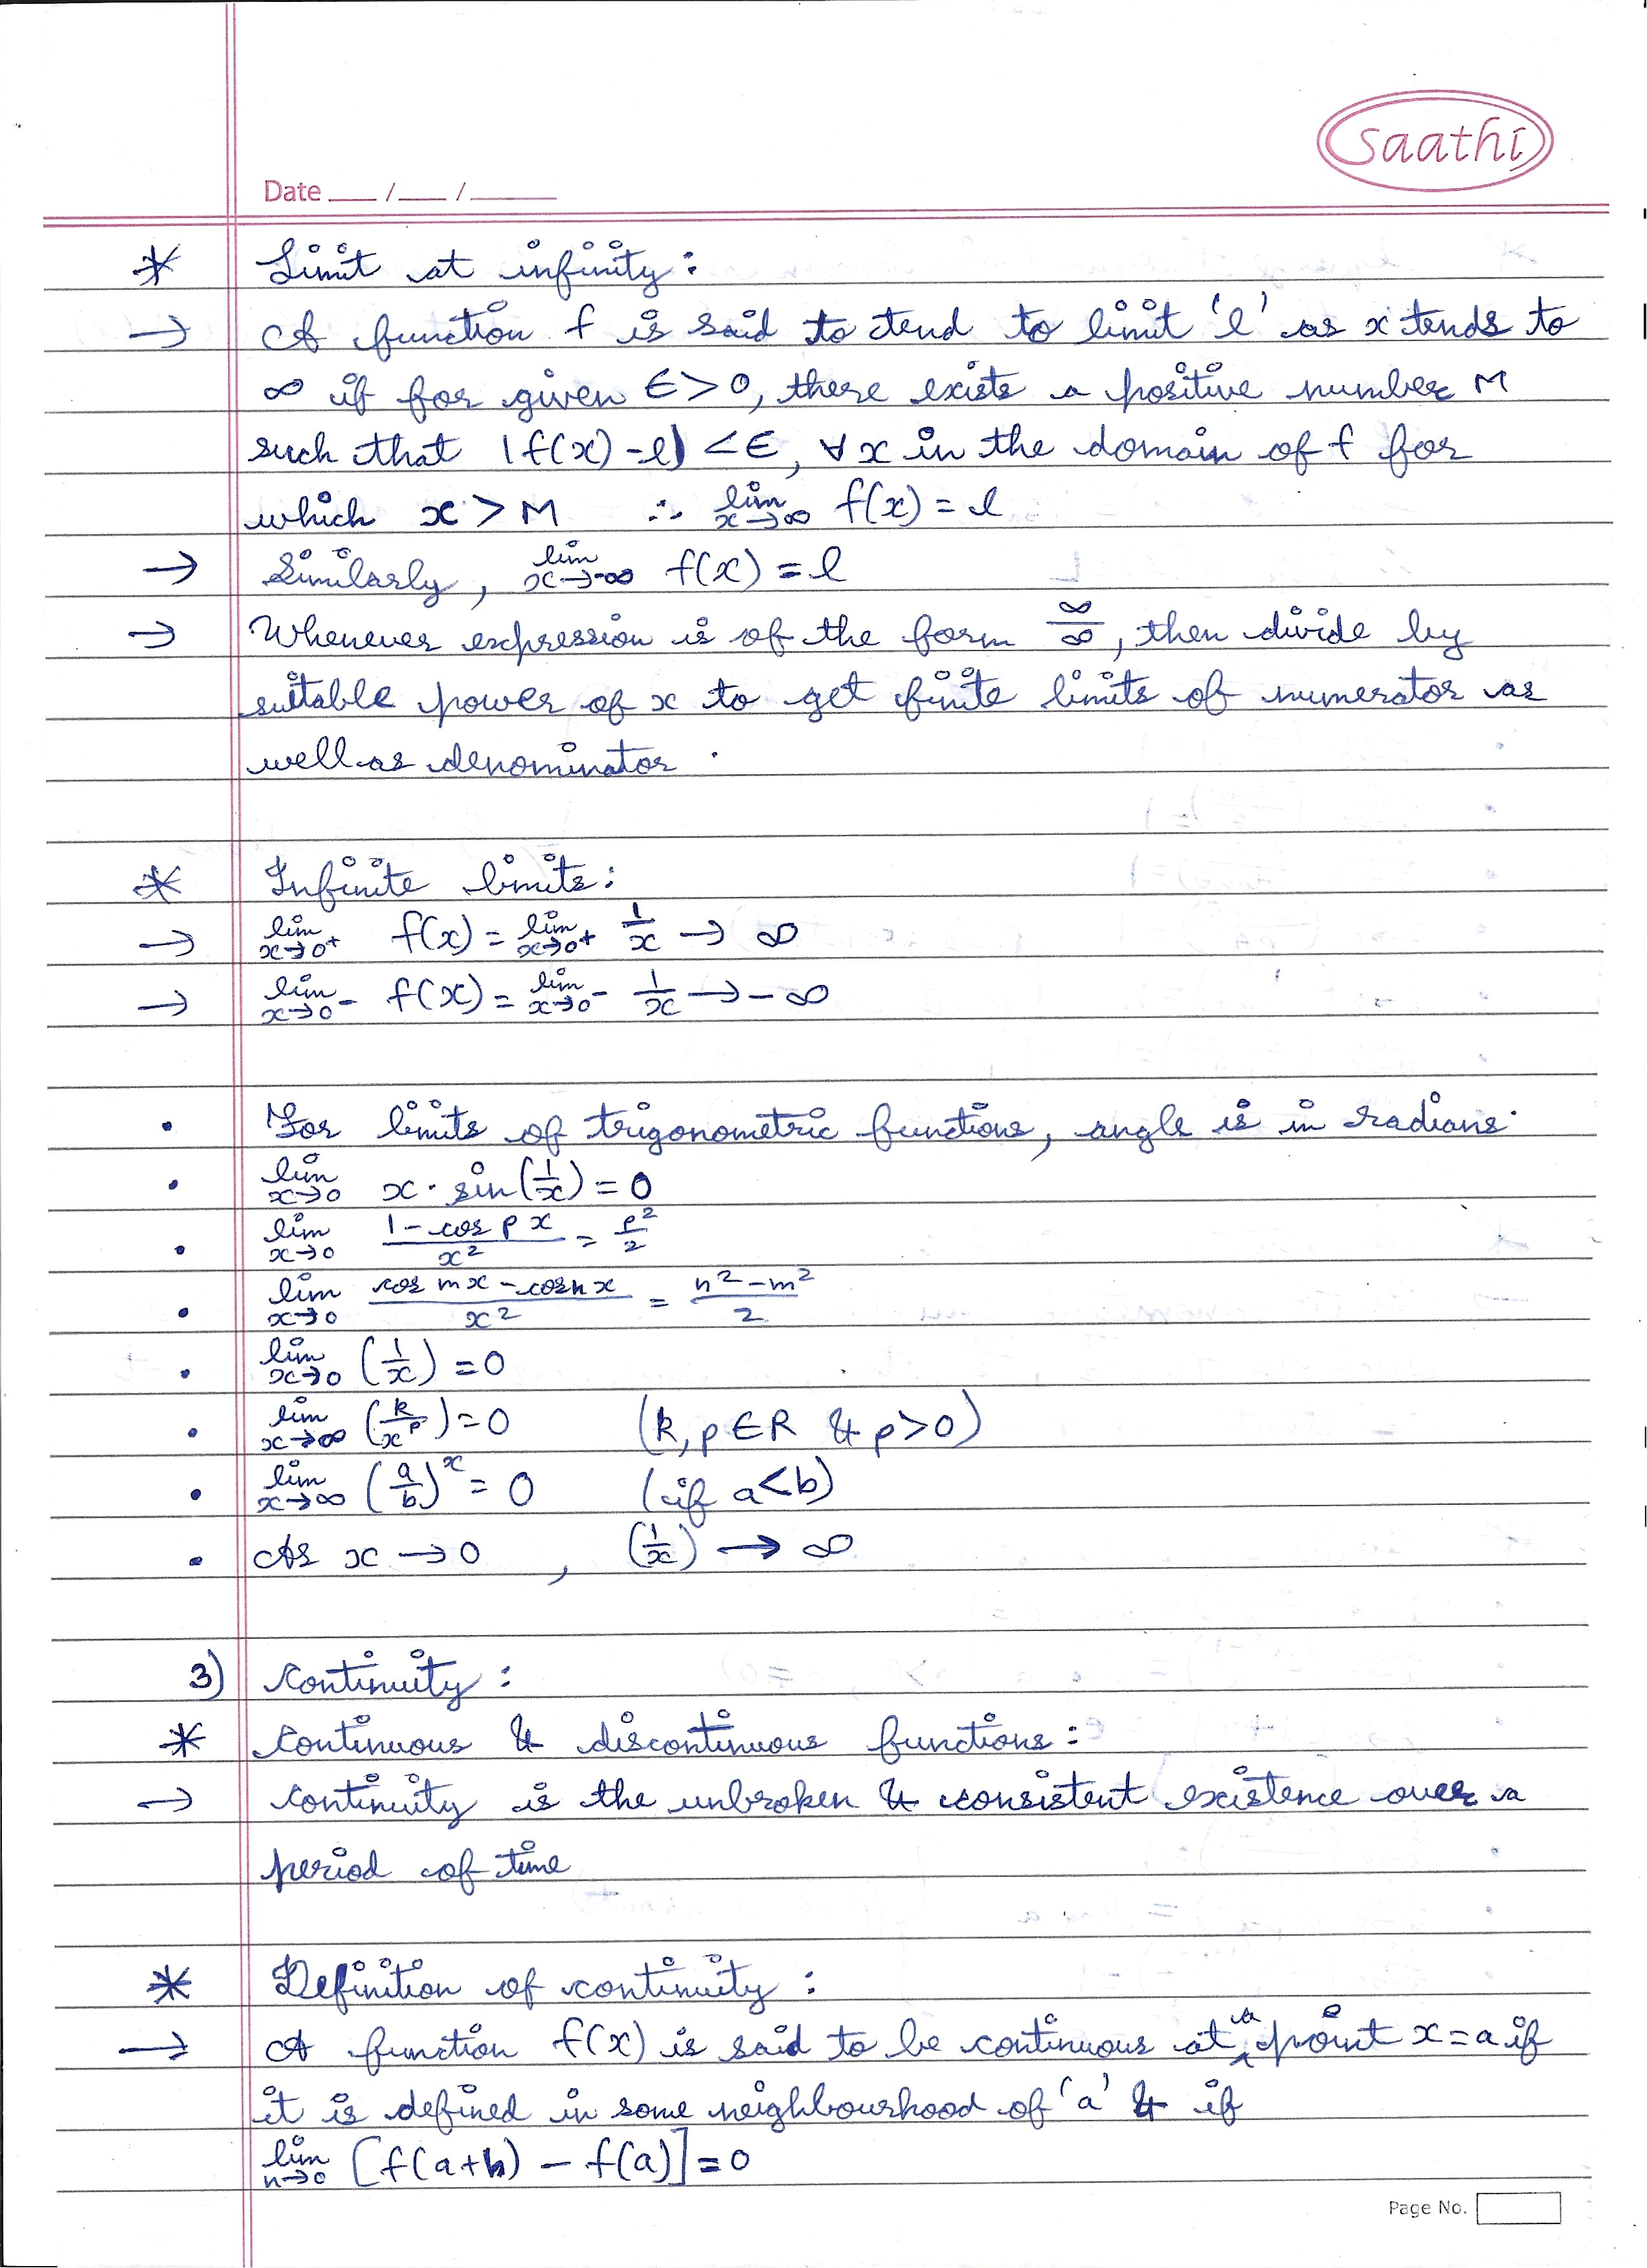 saathi
Date ___/___/______
* Limit at infinity:
→ A function f is said to tend to limit 'l' as x tends to
∞ if for given ∈>0, there exists a positive number M
such that |f(x)-l| <∈, ∀ x in the domain of f for
which x > M ∴ lim x→∞ f(x) = l
→ Similarly, lim x→-∞ f(x) = l
→ Whenever expression is of the form ∞/∞, then divide by
suitable power of x to get finite limits of numerator as
well as denominator.
* Infinite limits:
→ lim x→0+ f(x) = lim x→0+ 1/x → ∞
→ lim x→0- f(x) = lim x→0- 1/x → -∞
• For limits of trigonometric functions, angle is in radians.
• lim x→0 x · sin(1/x) = 0
• lim x→0 (1 - cos px)/x² = p²/2
• lim x→0 (cos mx - cos nx)/x² = (n² - m²)/2
• lim x→0 (1/x) = 0
• lim x→∞ (k/x^p) = 0 (k, p ∈ R & p>0)
• lim x→∞ (a/b)^x = 0 (if a<b)
• As x → 0 , (1/x) → ∞
3) Continuity:
* Continuous & discontinuous functions:
→ Continuity is the unbroken & consistent existence over a
period of time
* Definition of continuity:
→ A function f(x) is said to be continuous at a point x = a if
it is defined in some neighbourhood of 'a' & if
lim h→0 [f(a+h) - f(a)] = 0
Page No.